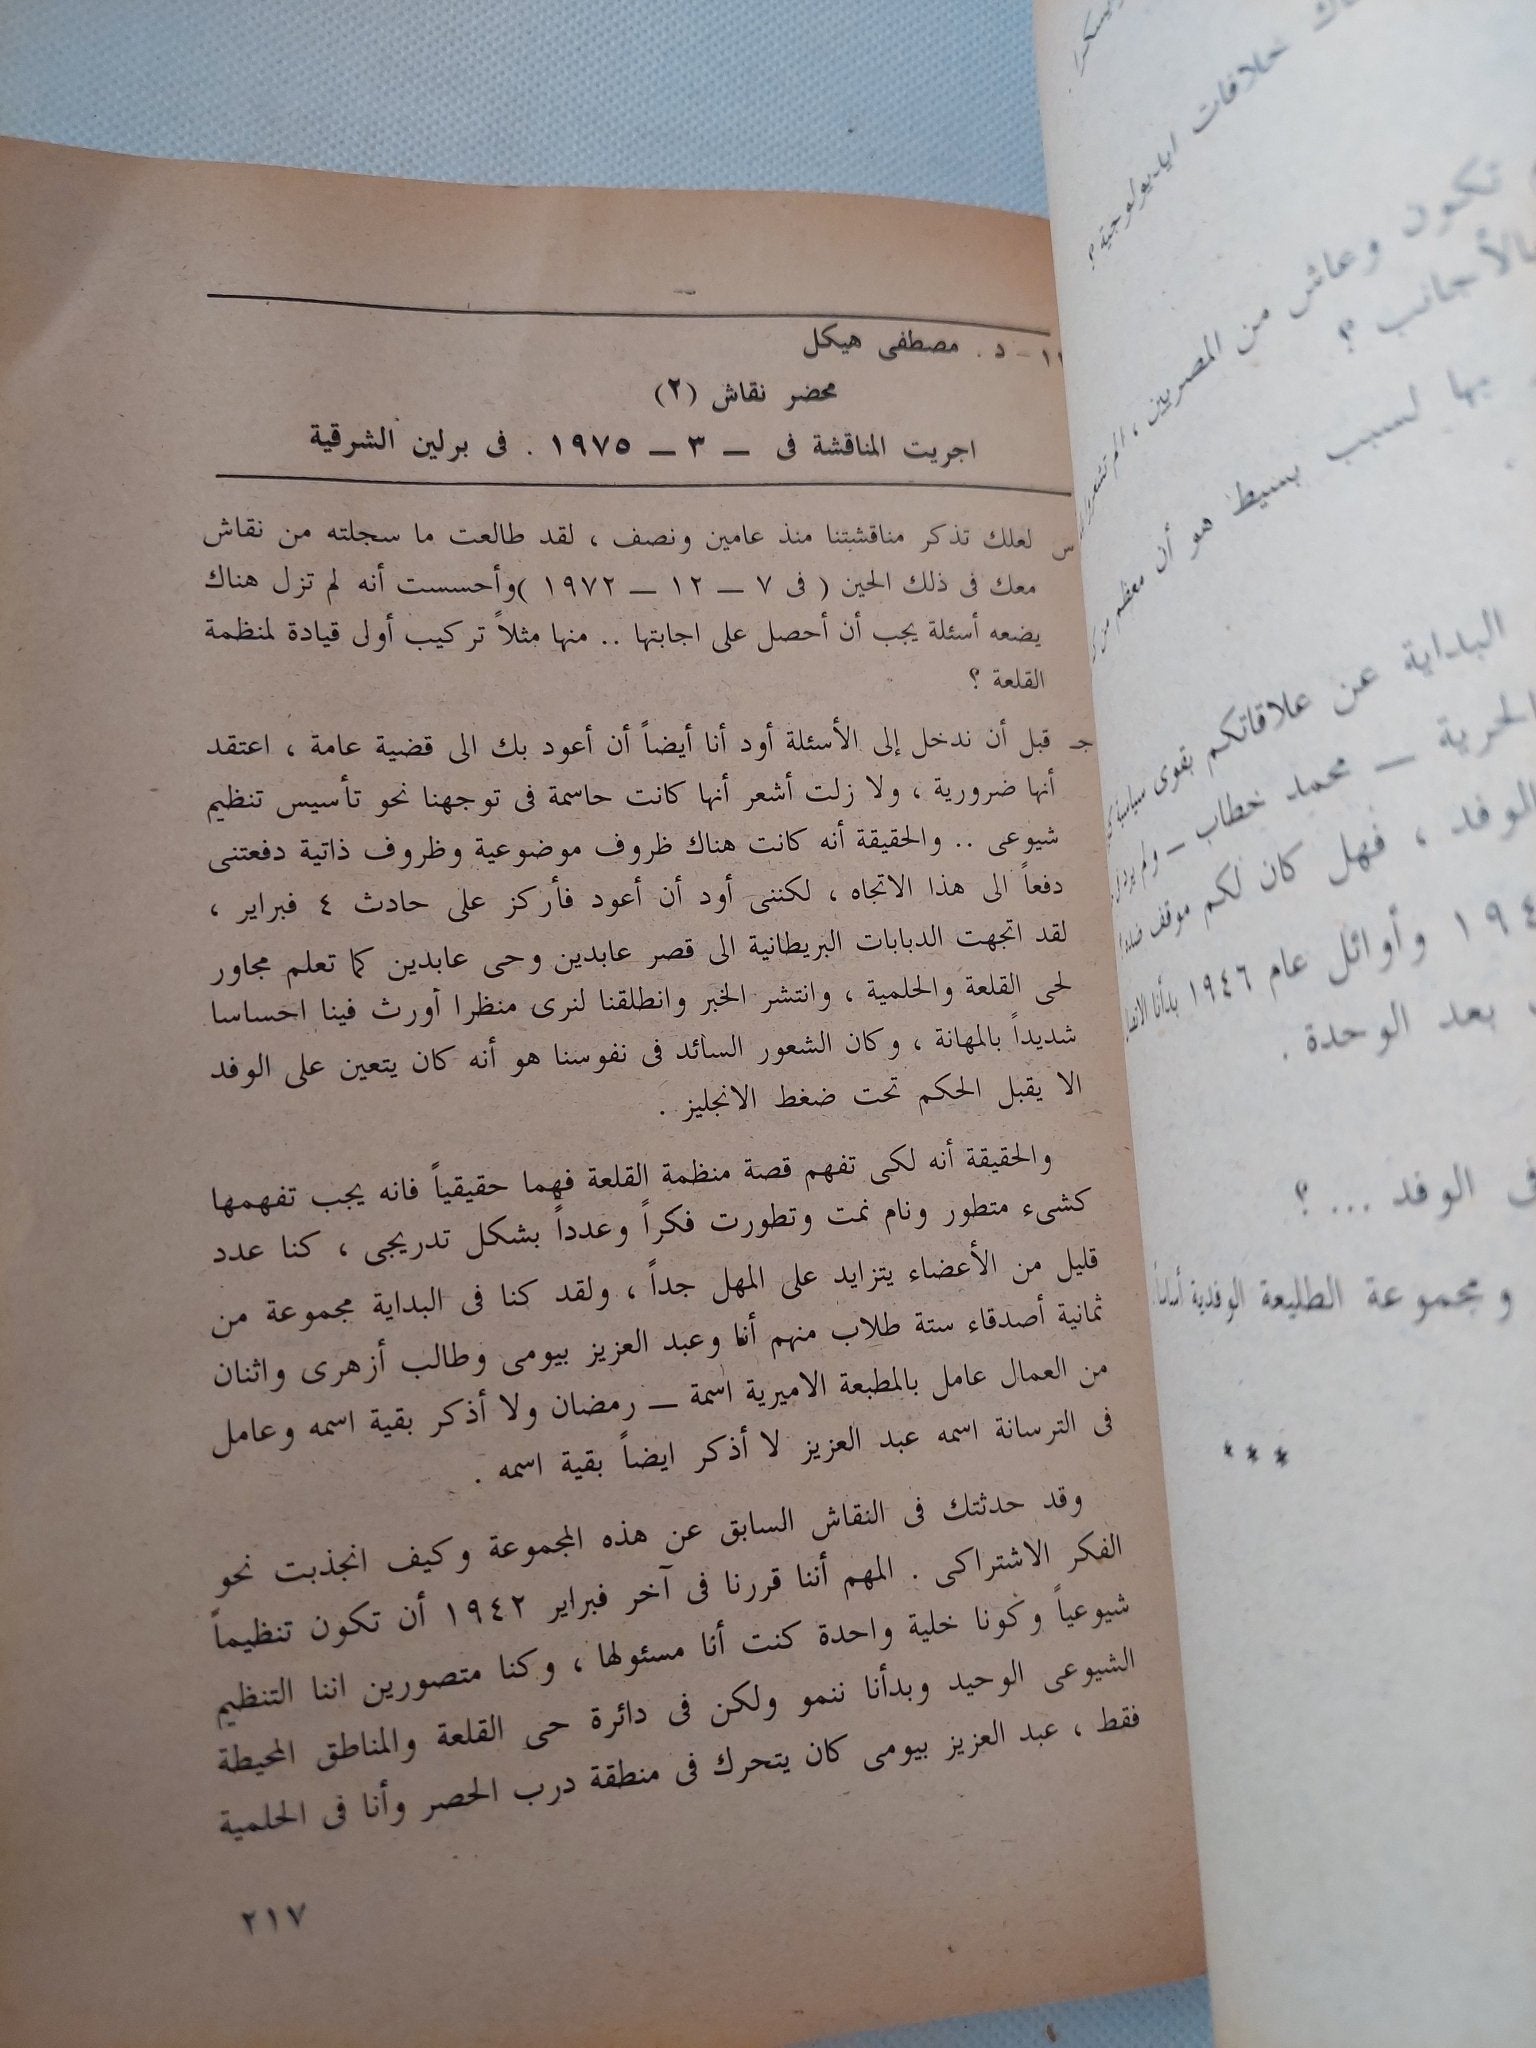 ١١ - د . مصطفى هيكل
محضر نقاش (٢)
اجريت المناقشة فى ــ ٣ ــ ١٩٧٥ . فى برلين الشرقية
س لعلك تذكر مناقشبتنا منذ عامين ونصف ، لقد طالعت ما سجلته من نقاش
معك فى ذلك الحين ( فى ٧ ــ ١٢ ــ ١٩٧٢ )وأحسست أنه لم تزل هناك
يضعه أسئلة يجب أن أحصل على اجابتها .. منها مثلاً تركيب أول قيادة لمنظمة
القلعة ؟
جـ قبل أن ندخل إلى الأسئلة أود أنا أيضاً أن أعود بك الى قضية عامة ، اعتقد
أنها ضرورية ، ولا زلت أشعر أنها كانت حاسمة فى توجهنا نحو تأسيس تنظيم
شيوعى .. والحقيقة أنه كانت هناك ظروف موضوعية وظروف ذاتية دفعتنى
دفعاً الى هذا الاتجاه ، لكننى أود أن أعود فأركز على حادث ٤ فبراير ،
لقد اتجهت الدبابات البريطانية الى قصر عابدين وحى عابدين كما تعلم مجاور
لحى القلعة والحلمية ، وانتشر الخبر وانطلقنا لنرى منظرا أورث فينا احساسا
شديداً بالمهانة ، وكان الشعور السائد فى نفوسنا هو أنه كان يتعين على الوفد
الا يقبل الحكم تحت ضغط الانجليز .
والحقيقة أنه لكى تفهم قصة منظمة القلعة فهما حقيقياً فانه يجب تفهمها
كشىء متطور ونام نمت وتطورت فكراً وعدداً بشكل تدريجى ، كنا عدد
قليل من الأعضاء يتزايد على المهل جداً ، ولقد كنا فى البداية مجموعة من
ثمانية أصدقاء ستة طلاب منهم أنا وعبد العزيز بيومى وطالب أزهرى واثنان
من العمال عامل بالمطبعة الاميرية اسمة ــ رمضان ولا أذكر بقية اسمه وعامل
فى الترسانة اسمه عبد العزيز لا أذكر ايضاً بقية اسمه .
وقد حدثتك فى النقاش السابق عن هذه المجموعة وكيف انجذبت نحو
الفكر الاشتراكى . المهم أننا قررنا فى آخر فبراير ١٩٤٢ أن تكون تنظيماً
شيوعياً وكونا خلية واحدة كنت أنا مسئولها ، وكنا متصورين اننا التنظيم
الشيوعى الوحيد وبدأنا ننمو ولكن فى دائرة حى القلعة والمناطق المحيطة
فقط ، عبد العزيز بيومى كان يتحرك فى منطقة درب الحصر وأنا فى الحلمية
٢١٧
خلافات ايديولوجية ؟
تكون وعاش من المصريين ، الم تشعروا
بالأجانب ؟
بها لسبب بسيط هو أن معظم من
البداية عن علاقاتكم بقوى سياسية
الحرية ــ محمد خطاب ــ ولم
الوفد ، فهل كان لكم موقف
وأوائل عام ١٩٤٦ بدأنا
بعد الوحدة .
فى الوفد ... ؟
ومجموعة الطليعة الوفدية أساساً
***